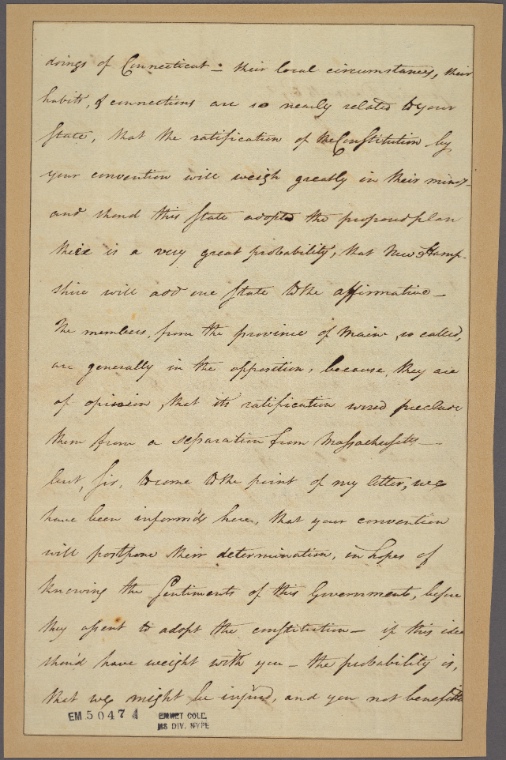 doings of Connecticut - their local circumstances, their
habits, & connections are so nearly related to your
State, that the ratification of the Constitution by
your convention will weigh greatly in their minds -
and shoud this State adopts the proposed plan
there is a very great probability, that New Hamp-
shire will add one State to the affirmative -
The members, from the province of Main, so called,
are generally in the opposition, because, they are
of opinion, that its ratification woud preclude
them from a separation from Massachusetts -
but, Sir, to come to the point of my letter, we
have been inform'd here, that your convention
will postpone their determination, in hopes of
knowing the Sentiments of this Government, before
they assent to adopt the constitution - if this idea
shoud have weight with you - the probability is,
that we might be injur'd, and you not benefitted
EM 50474
EMMET COLL.
MS DIV. NYPL